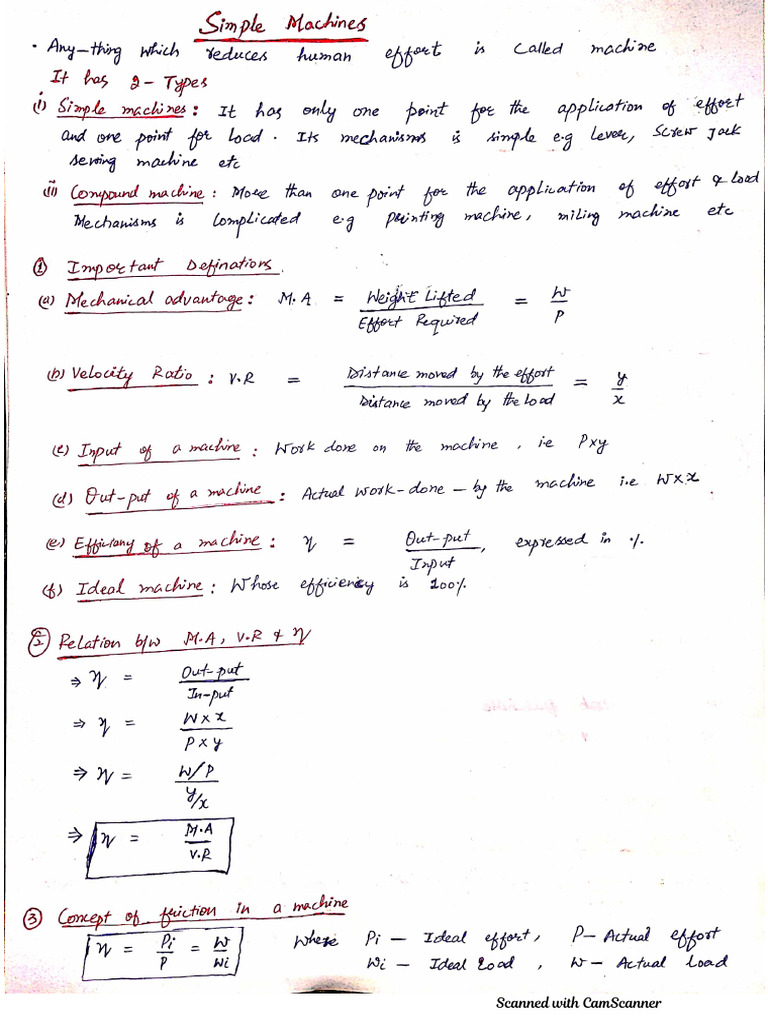 Simple Machines
· Any-thing which reduces human effort is called machine
It has 2- Types
(i) Simple machines : It has only one point for the application of effort
and one point for load . Its mechanisms is simple e.g Lever, Screw Jack
sewing machine etc
(ii) Compound machine : More than one point for the application of effort & load
Mechanisms is complicated e.g printing machine, miling machine etc
① Important Definations.
(a) Mechanical advantage : M.A = Weight Lifted / Effort Required = W / P
(b) Velocity Ratio : V.R = Distance moved by the effort / Distance moved by the load = y / x
(c) Input of a machine : Work done on the machine , ie P×y
(d) Out-put of a machine : Actual work-done - by the machine i.e W×x
(e) Efficiany of a machine : η = Out-put / Input , expressed in %
(f) Ideal machine : Whose efficiency is 100%
② Relation b/w M.A, V.R & η
⇒ η = Out-put / In-put
⇒ η = W×x / P×y
⇒ η = W/P / y/x
⇒ η = M.A / V.R
③ Concept of friction in a machine
η = Pi / P = W / Wi Where Pi — Ideal effort, P- Actual effort
Wi — Ideal Load , W — Actual Load
Scanned with CamScanner